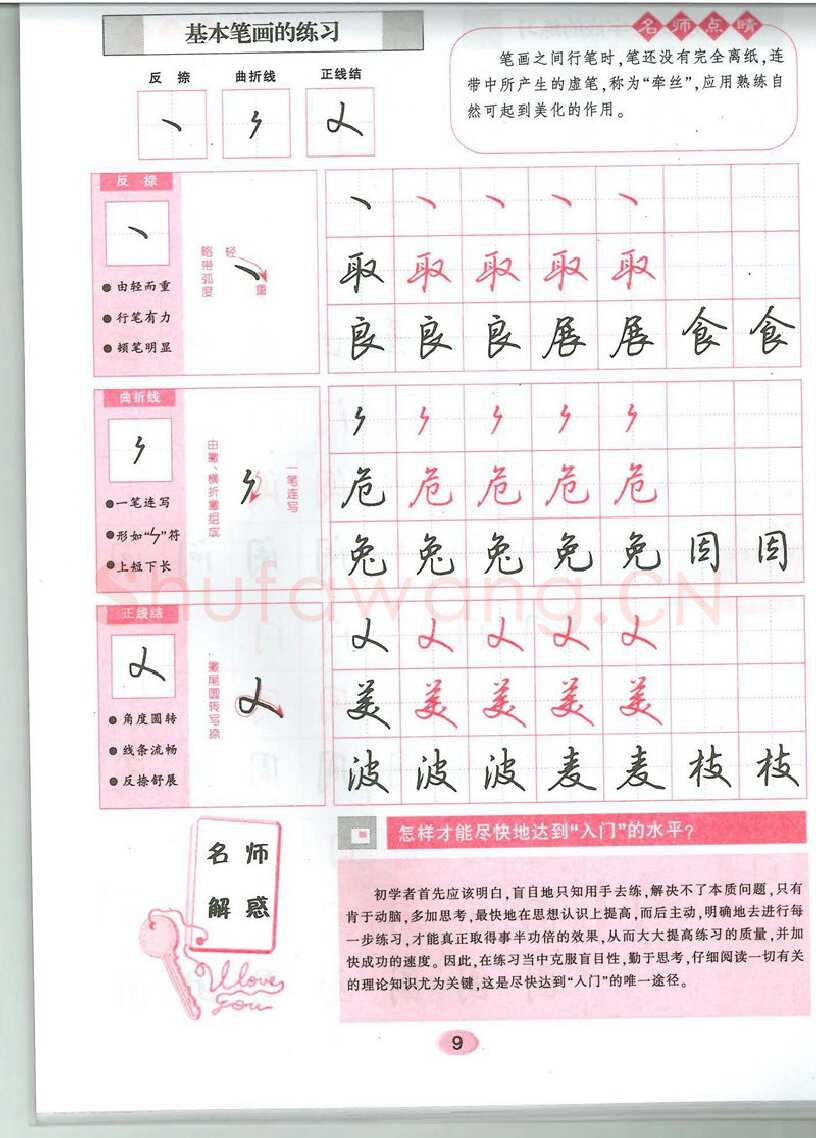 基本笔画的练习
名师点睛
笔画之间行笔时,笔还没有完全离纸,连
带中所产生的虚笔,称为“牵丝”,应用熟练自
然可起到美化的作用。
反捺 曲折线 正线结
反捺
由轻而重
行笔有力
顿笔明显
略带弧度
轻
重
取 取 取 取 取
良 良 良 展 展 食 食
曲折线
一笔连写
形如“ㄣ”符
上短下长
由撇、横折撇组成
一笔连写
危 危 危 危 危
兔 兔 兔 免 免 因 因
正线结
角度圆转
线条流畅
反捺舒展
撇尾圆转写捺
美 美 美 美 美
波 波 波 麦 麦 枝 枝
Shufawang.CN
名师
解惑
I love
you
怎样才能尽快地达到“入门”的水平?
初学者首先应该明白,盲目地只知用手去练,解决不了本质问题,只有
肯于动脑,多加思考,最快地在思想认识上提高,而后主动,明确地去进行每
一步练习,才能真正取得事半功倍的效果,从而大大提高练习的质量,并加
快成功的速度。因此,在练习当中克服盲目性,勤于思考,仔细阅读一切有关
的理论知识尤为关键,这是尽快达到“入门”的唯一途径。
9